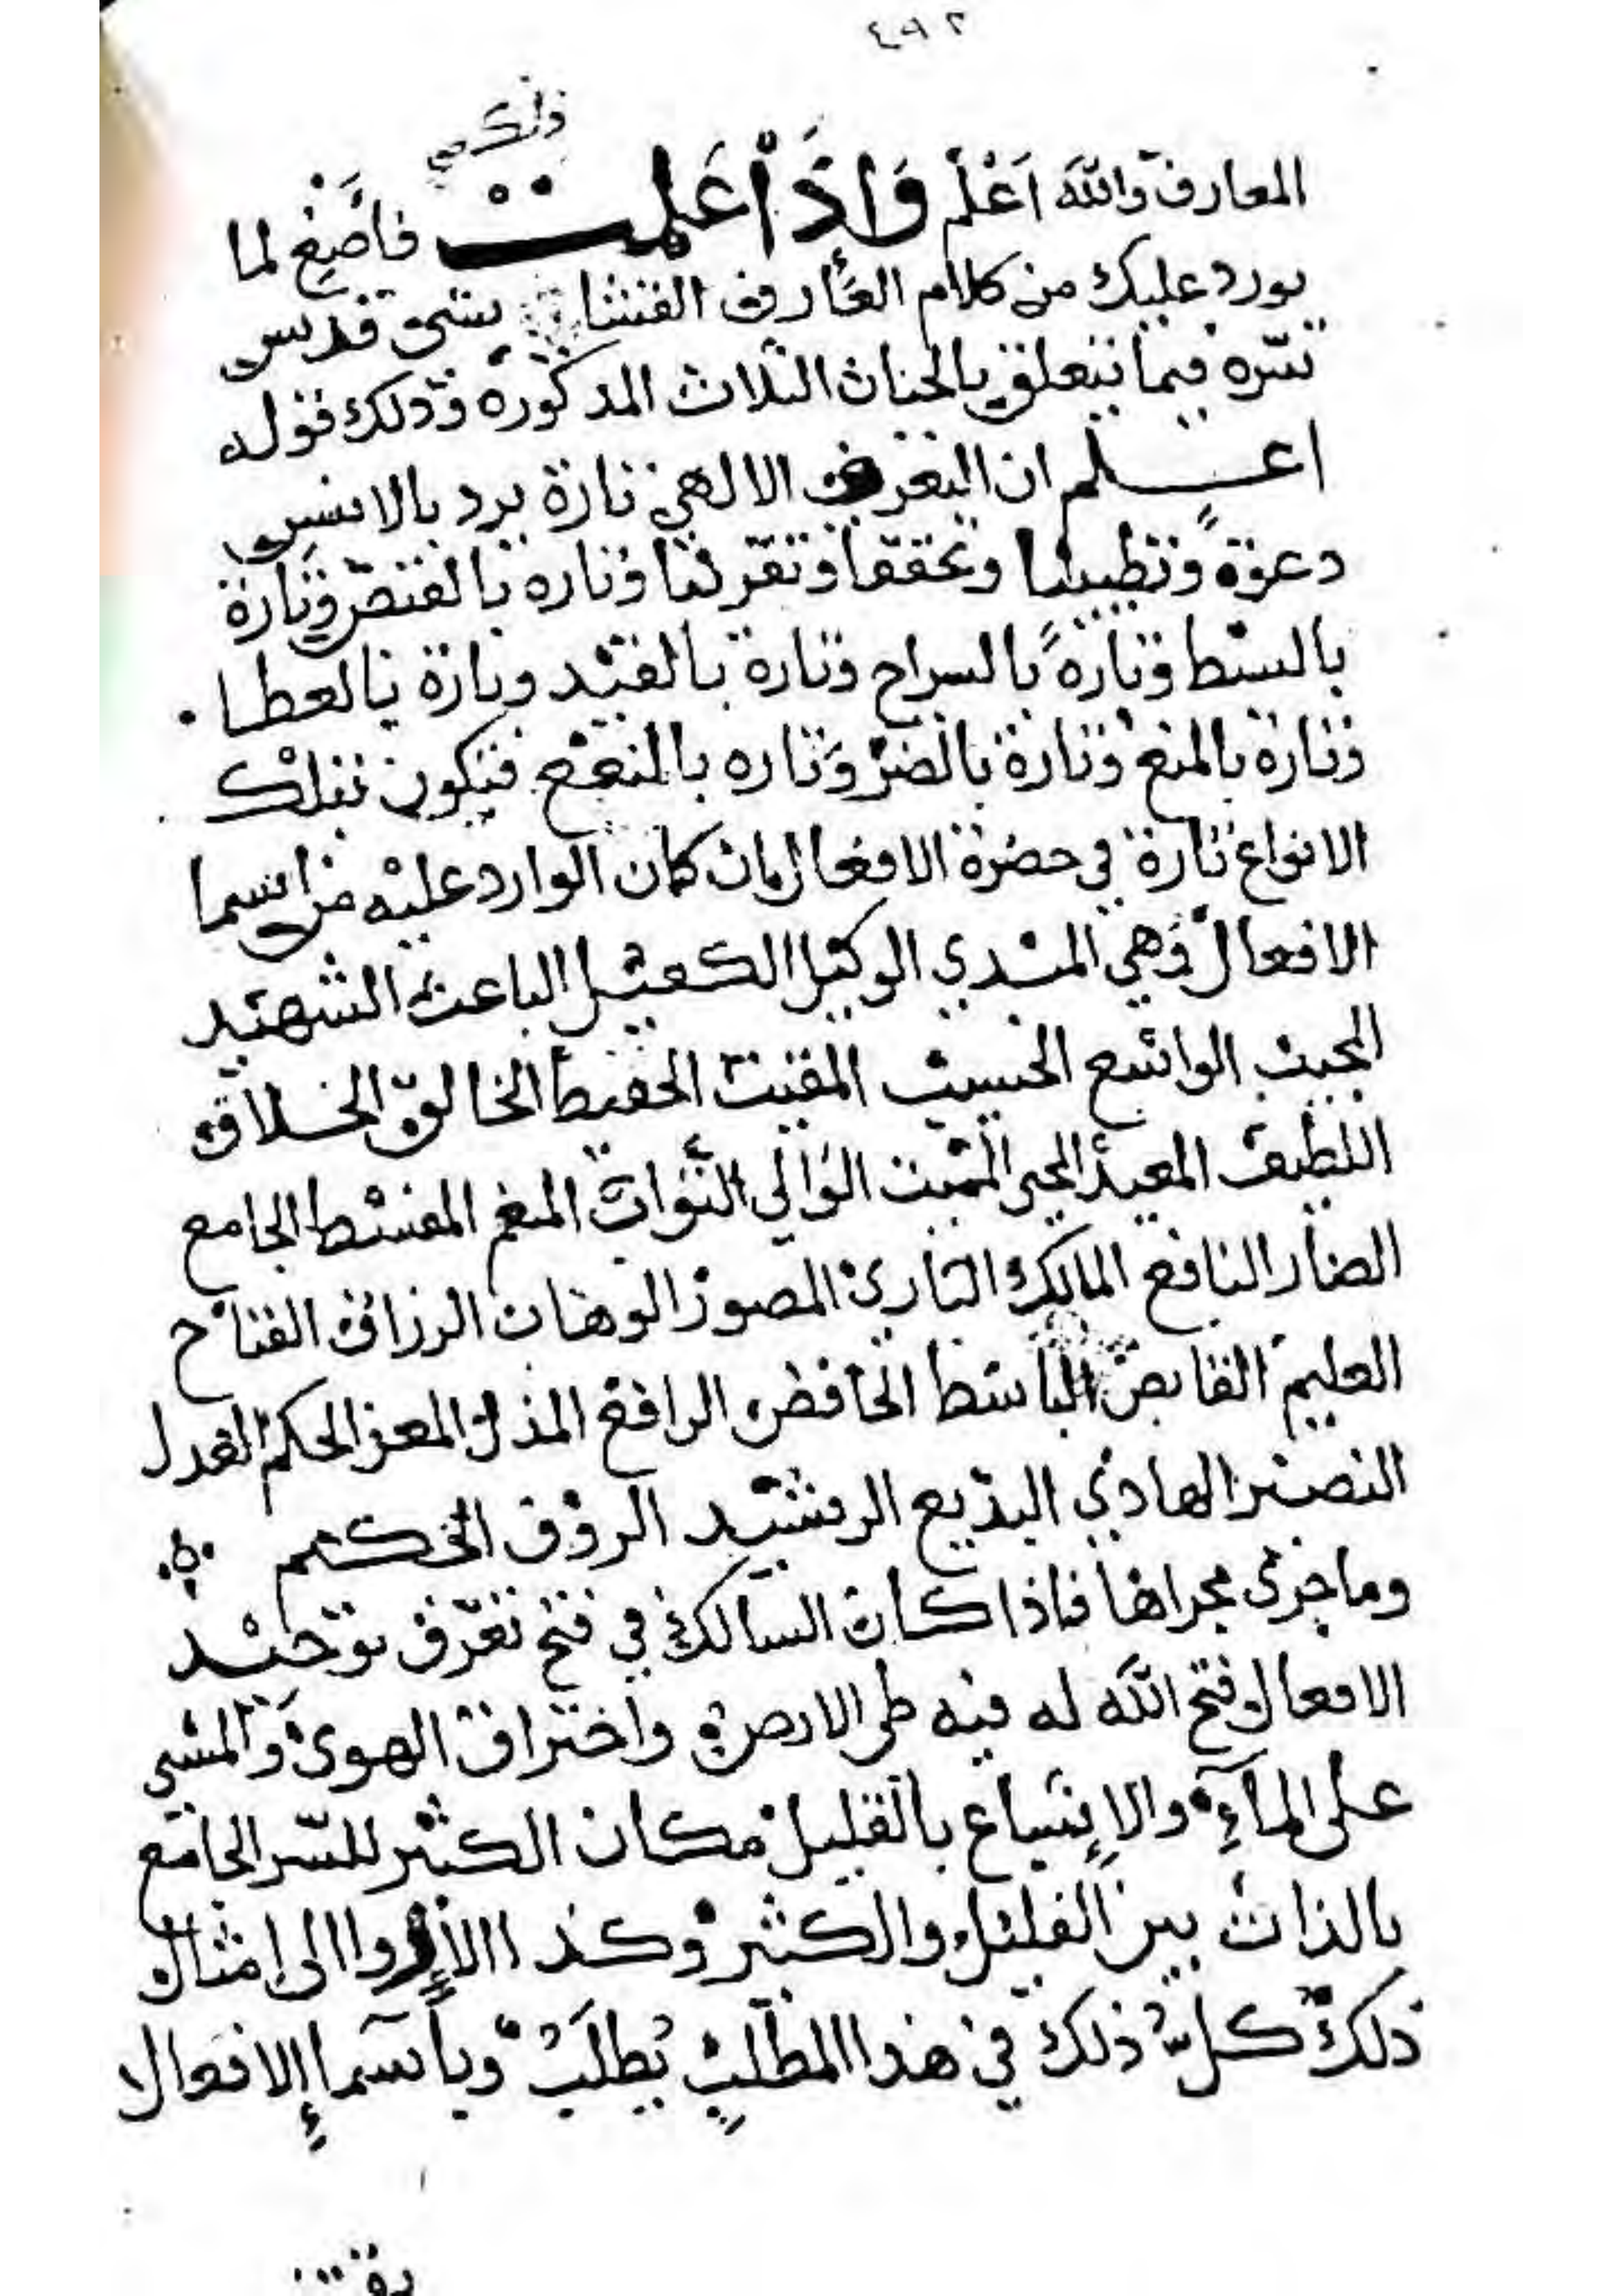 ٤٩٢
ذلك
المعارف والله اَعْلم وَاِذَا عَلمت فاَصْغِ لما
يورد عليك من كلام العارف القشاشى قدس
سره فيما يتعلق بالجنات الثلاث المذكورة وذلك قوله
اعلم ان التعرف الالهي تارة يرد بالانس
دعوة وتحققا وتارة بالقبض وتارة
بالبسط وتارةً بالسراح وتارة بالقيد وتارة بالعطا
وتارة بالمنع وتارة بالضر وتاره بالنفع فتكون تلك
الانواع تارة في حضرة الافعال كان الوارد عليه من اسما
الافعال وهي المبدي الوكيل الكفيل الباعث الشهيد
المجيب الواسع الحسيب المقيت الحفيظ الخالق الخلاق
اللطيف المعيد المحيي المميت الوالي التواب المنعم المقسط الجامع
الضار النافع المالك البارئ المصور الوهاب الرزاق الفتاح
العليم القابض الباسط الخافض الرافع المذل المعز الحكم العدل
النصير الهادي البديع الرشيد الرؤف الحكيم
وما جرى مجراها فاذا كان السالك في فتح تعرف توحيد
الافعال وفتح الله له فيه طي الارض واختراق الهوى والمشي
على المآء والاتساع بالقليل مكان الكثير للسر الجامع
بالذات بين القليل والكثير وكذا والى امثال
ذلك كل ذلك في هذا المطلب يُطلَبُ وبأسماءِ الافعال